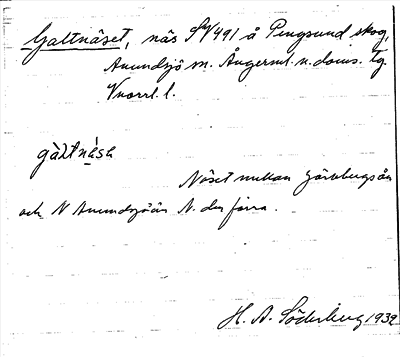 Galtnäset, näs S/491 å Pengsund skog,
Anundsjö sn. Ångerml. n. doms. tg.
Vnorrl. l.
gàltnésa
Näset mellan Järvbergsån
och N Anundsjöån N. den förra.
H. A. Söderberg 1932